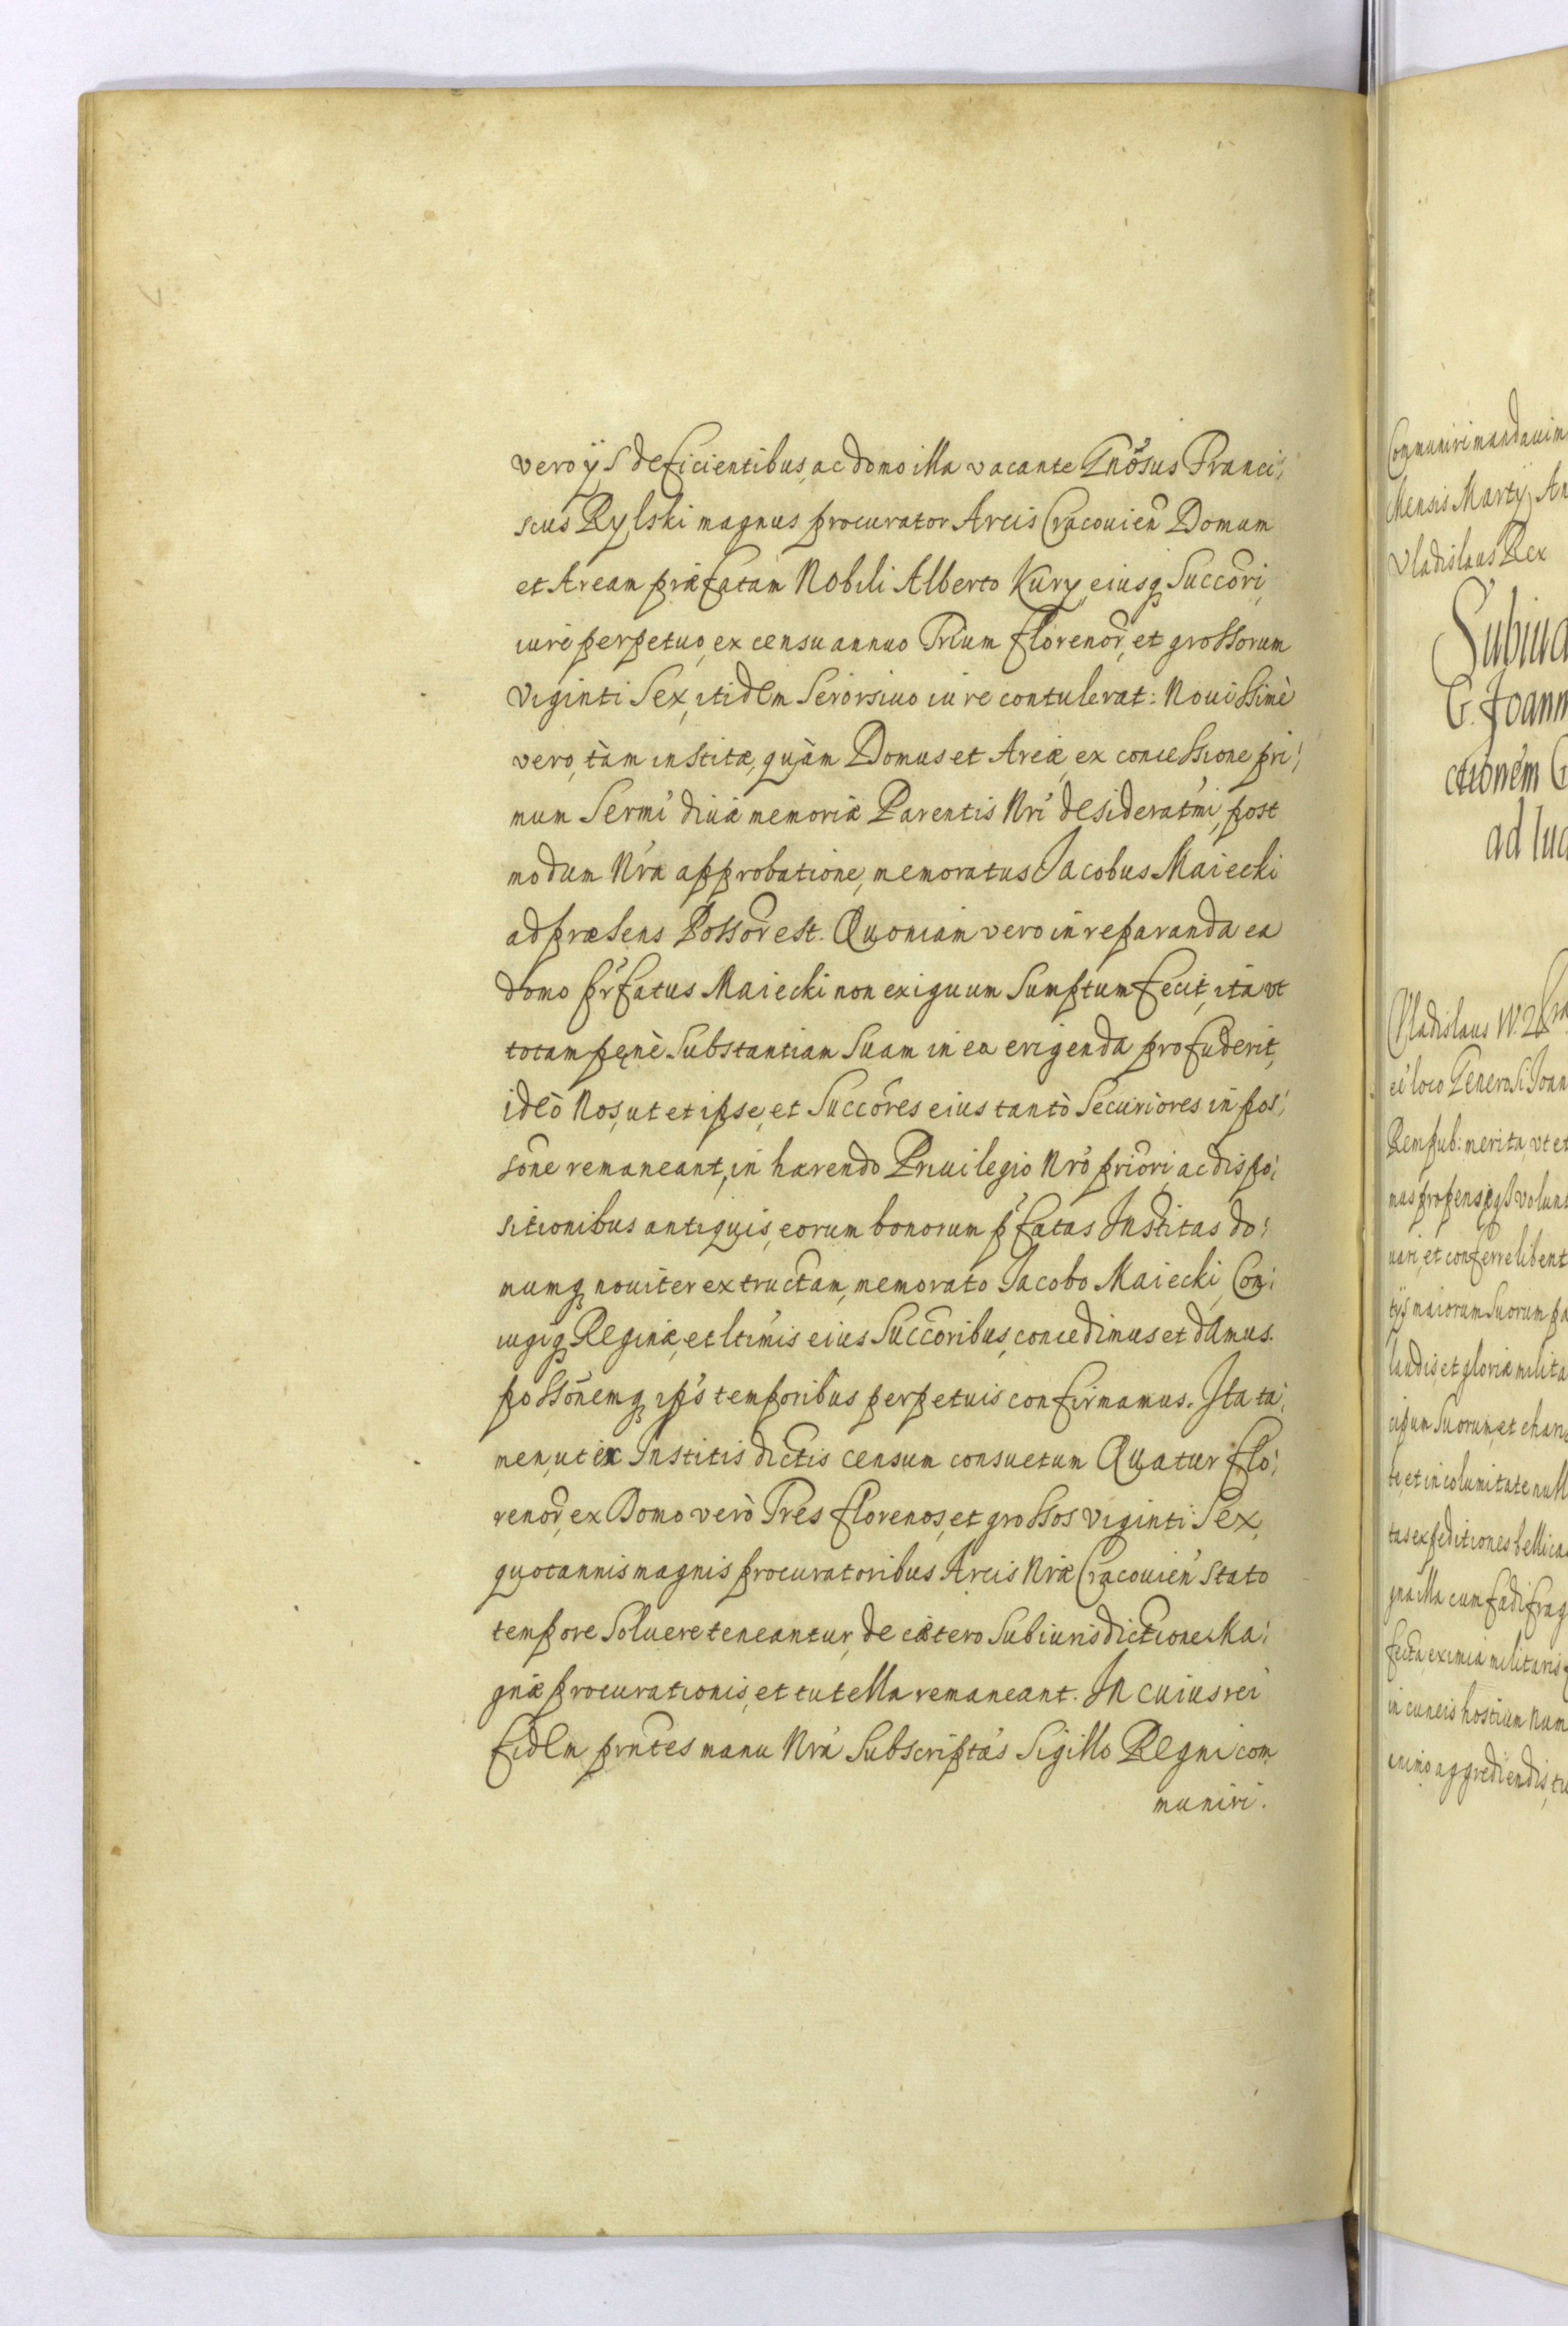 vero ijs deficientibus, ac domo illa vacante Gnõsus Franci:
scus Rylski magnus procurator Arcis Cracouien̄ Domum
et Aream præfatam Nobili Alberto Kury eiusq; Succōri,
iure perpetuo, ex censu annuo Trium florenor̄, et grossorum
viginti Sex, itidem Serorsiuo iure contulerat: Nouissimè
vero, tàm institæ, quàm Domus et Areæ, ex concessione pri:
mum Serm̄i diuæ memoriæ Parentis Nr̄i desiderat̄mi, post
modum Nr̄a approbatione, memoratus Jacobus Maiecki
ad præsens Possōr est. Quoniam vero in reparanda ea
domo pr̄fatus Maiecki non exiguum Sumptum fecit, ita vt
totam penè Substantiam Suam in ea erigenda profuderit,
ideò Nos, ut et ipse, et Succōres eius tantò Securiores in pos:
sōne remaneant, in hærendo Priuilegio Nr̄o priori, ac dispo:
sitionibus antiquis, eorum bonorum p̄fatas Institas do:
mumq; nouiter extructam, memorato Jacobo Maiecki, Con:
iugiq; Reginæ, et lt̄imis eius Succōribus, concedimus et damus.
possōnemq; ip̄s temporibus perpetuis confirmamus. Ita ta:
men, ut ex Institis dictis censum consuetum Quatur Flo:
renor̄, ex Domo verò Tres florenos, et grossos viginti Sex,
quotannis magnis procuratoribus Arcis Nr̄æ Cracouien̄ Stato
tempore Soluere teneantur, de cætero Sub iurisdictione Ma:
gnæ procurationis, et tutella remaneant. In cuius rei
fidem pr̄ntes manu Nr̄a Subscriptas Sigillo Regni com
muniri.
Communiri mandauim
Mensis Martij, An
Vladislaus Rex
G. Joann
ctionem G
ad luc
Vladislaus IV.
ei loco Generosi Joan
Rempub: merita, vt et
uari, et conferre libent
tijs maiorum Suorum pa
laudis et gloriæ milita
cipum Suorum, et chari
te, et in columitate null
tas expeditiones bellica
gna illa cum fœdifrag
fecta, eximia militaris
in cuneis hostium Num
animo aggrediendis, tu